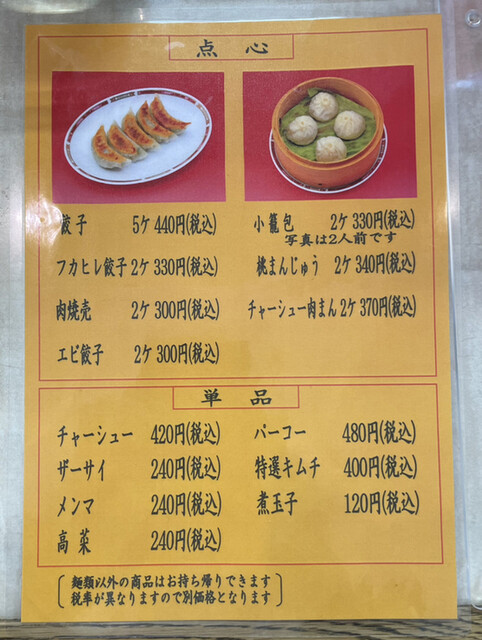 点心
餃子 5ケ 440円(税込)
フカヒレ餃子 2ケ 330円(税込)
肉焼売 2ケ 300円(税込)
エビ餃子 2ケ 300円(税込)
小籠包 2ケ 330円(税込)
写真は2人前です
桃まんじゅう 2ケ 340円(税込)
チャーシュー肉まん 2ケ 370円(税込)
単品
チャーシュー 420円(税込)
ザーサイ 240円(税込)
メンマ 240円(税込)
高菜 240円(税込)
パーコー 480円(税込)
特選キムチ 400円(税込)
煮玉子 120円(税込)
麺類以外の商品はお持ち帰りできます
税率が異なりますので別価格となります